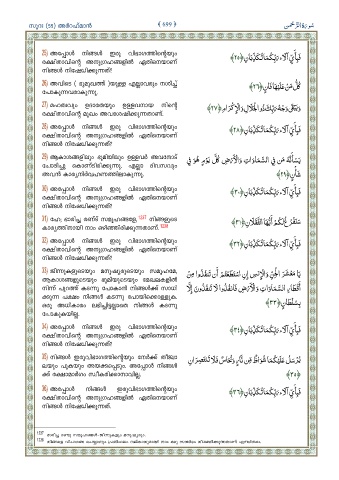 സൂറ (55) അർറഹ്മാൻ
﴾ 699 ﴿
سُورَةُ الرَّحْمٰن
25) അപ്പോൾ നിങ്ങൾ ഇരു വിഭാഗത്തിന്റെയും
രക്ഷിതാവിന്റെ അനുഗ്രഹങ്ങളിൽ ഏതിനെയാണ്
നിങ്ങൾ നിഷേധിക്കുന്നത്?
فَبِأَيِّ آلَاءِ رَبِّكُمَا تُكَذِّبَانِ ﴿٢٥﴾
26) അവിടെ ( ഭൂമുഖത്ത് )യുള്ള എല്ലാവരും നശിച്ച്
പോകുന്നവരാകുന്നു.
كُلُّ مَنْ عَلَيْهَا فَانٍ ﴿٢٦﴾
27) മഹത്വവും ഉദാരതയും ഉള്ളവനായ നിന്റെ
രക്ഷിതാവിന്റെ മുഖം അവശേഷിക്കുന്നതാണ്.
وَيَبْقَىٰ وَجْهُ رَبِّكَ ذُو الْجَلَالِ وَالْإِكْرَامِ ﴿٢٧﴾
28) അപ്പോൾ നിങ്ങൾ ഇരു വിഭാഗത്തിന്റെയും
രക്ഷിതാവിന്റെ അനുഗ്രഹങ്ങളിൽ ഏതിനെയാണ്
നിങ്ങൾ നിഷേധിക്കുന്നത്?
فَبِأَيِّ آلَاءِ رَبِّكُمَا تُكَذِّبَانِ ﴿٢٨﴾
29) ആകാശങ്ങളിലും ഭൂമിയിലും ഉള്ളവർ അവനോട്
ചോദിച്ചു കൊണ്ടിരിക്കുന്നു. എല്ലാ ദിവസവും
അവൻ കാര്യനിർവഹണത്തിലാകുന്നു.
يَسْأَلُهُ مَن فِي السَّمَاوَاتِ وَالْأَرْضِ كُلَّ يَوْمٍ هُوَ فِي
شَأْنٍ ﴿٢٩﴾
30) അപ്പോൾ നിങ്ങൾ ഇരു വിഭാഗത്തിന്റെയും
രക്ഷിതാവിന്റെ അനുഗ്രഹങ്ങളിൽ ഏതിനെയാണ്
നിങ്ങൾ നിഷേധിക്കുന്നത്?
فَبِأَيِّ آلَاءِ رَبِّكُمَا تُكَذِّبَانِ ﴿٣٠﴾
31) ഹേ, ഭാരിച്ച രണ്ട് സമൂഹങ്ങളേ, 1137 നിങ്ങളുടെ
കാര്യത്തിനായി നാം ഒഴിഞ്ഞിരിക്കുന്നതാണ്. 1138
سَنَفْرُغُ لَكُمْ أَيُّهَ الثَّقَلَانِ ﴿٣١﴾
32) അപ്പോൾ നിങ്ങൾ ഇരു വിഭാഗത്തിന്റെയും
രക്ഷിതാവിന്റെ അനുഗ്രഹങ്ങളിൽ ഏതിനെയാണ്
നിങ്ങൾ നിഷേധിക്കുന്നത്?
فَبِأَيِّ آلَاءِ رَبِّكُمَا تُكَذِّبَانِ ﴿٣٢﴾
33) ജിന്നുകളുടെയും മനുഷ്യരുടെയും സമൂഹമേ,
ആകാശങ്ങളുടെയും ഭൂമിയുടെയും മേഖലകളിൽ
നിന്ന് പുറത്ത് കടന്നു പോകാൻ നിങ്ങൾക്ക് സാധി
ക്കുന്ന പക്ഷം നിങ്ങൾ കടന്നു പോയിക്കൊള്ളുക.
ഒരു അധികാരം ലഭിച്ചിട്ടല്ലാതെ നിങ്ങൾ കടന്നു
പോകുകയില്ല.
يَا مَعْشَرَ الْجِنِّ وَالْإِنسِ إِنِ اسْتَطَعْتُمْ أَن تَنفُذُوا مِنْ
أَقْطَارِ السَّمَاوَاتِ وَالْأَرْضِ فَانفُذُوا لَا تَنفُذُونَ إِلَّا
بِسُلْطَانٍ ﴿٣٣﴾
34) അപ്പോൾ നിങ്ങൾ ഇരു വിഭാഗത്തിന്റെയും
രക്ഷിതാവിന്റെ അനുഗ്രഹങ്ങളിൽ ഏതിനെയാണ്
നിങ്ങൾ നിഷേധിക്കുന്നത്?
فَبِأَيِّ آلَاءِ رَبِّكُمَا تُكَذِّبَانِ ﴿٣٤﴾
35) നിങ്ങൾ ഇരുവിഭാഗത്തിന്റെയും നേർക്ക് തീജ്വാ
ലയും പുകയും അയക്കപ്പെടും. അപ്പോൾ നിങ്ങൾ
ക്ക് രക്ഷാമാർഗം സ്വീകരിക്കാനാവില്ല.
يُرْسَلُ عَلَيْكُمَا شُوَاظٌ مِّن نَّارٍ وَنُحَاسٌ فَلَا تَنتَصِرَانِ
﴿٣٥﴾
36) അപ്പോൾ നിങ്ങൾ ഇരുവിഭാഗത്തിന്റെയും
രക്ഷിതാവിന്റെ അനുഗ്രഹങ്ങളിൽ ഏതിനെയാണ്
നിങ്ങൾ നിഷേധിക്കുന്നത്.
فَبِأَيِّ آلَاءِ رَبِّكُمَا تُكَذِّبَانِ ﴿٣٦﴾
1137 ഭാരിച്ച രണ്ടു സമൂഹങ്ങൾ-ജിന്നുകളും മനുഷ്യരും.
1138